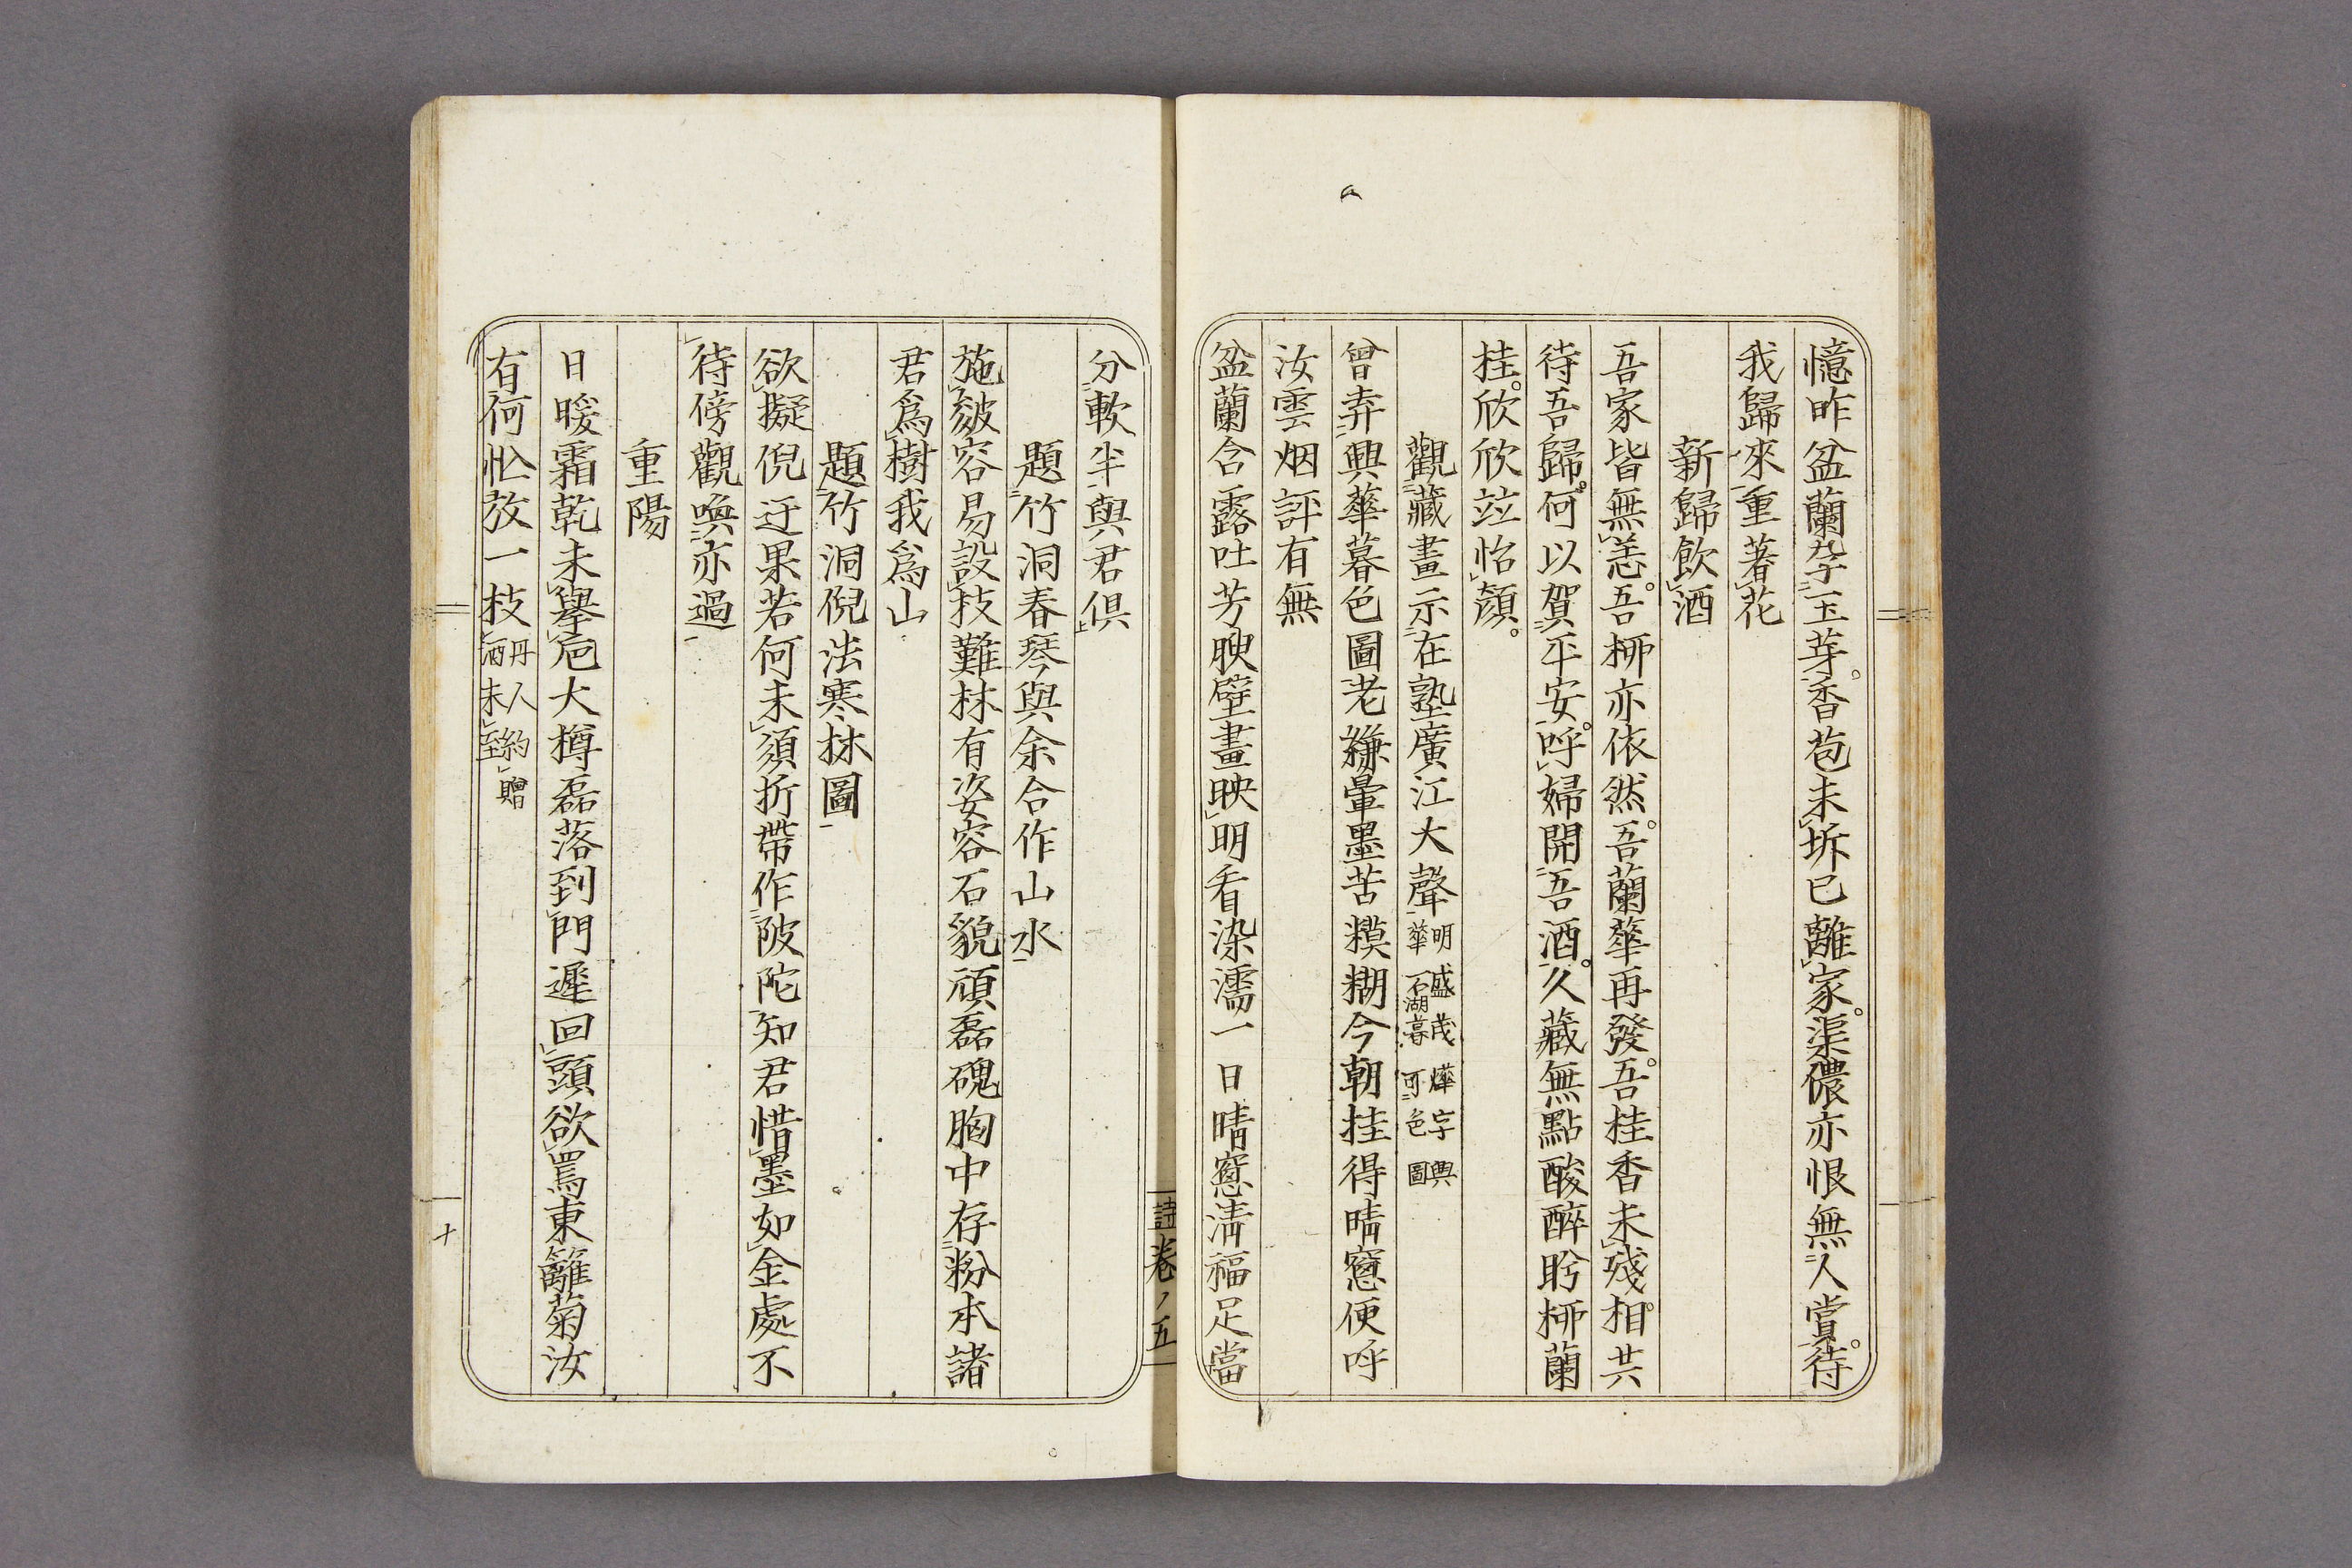 憶昨盆蘭孕玉芽香苞未坼已離家渠儂亦恨無人賞待
我歸來重著花
新歸飲酒
吾家皆無恙吾柳亦依然吾蘭華再發吾桂香未殘相共
待吾歸何以賀平安呼婦開吾酒久藏無點酸醉眄柳蘭
桂欣欣竝怡顏
觀藏畫示在塾廣江大聲明盛茂燁字與
華石湖暮可色圖
曾弆與華暮色圖老嫌暈墨苦糢糊今朝挂得晴窻便呼
汝雲烟評有無
盆蘭含露吐芳腴壁畫映明看染濡一日晴窻淸福足當
詩卷ノ五
分軟半與君俱
題竹洞春琴與余合作山水
施皴容易設技難林有姿容石貌頑磊磈胸中存粉本諸
君爲樹我爲山
題竹洞倪法寒林圖
欲擬倪迂果若何未須折帶作陂陀知君惜墨如金處不
待傍觀喚亦過
重陽
日暖霜乾未擧巵大樽磊落到門遲回頭欲罵東籬菊汝
有何忙放一枝丹人約贈
酒未至
十